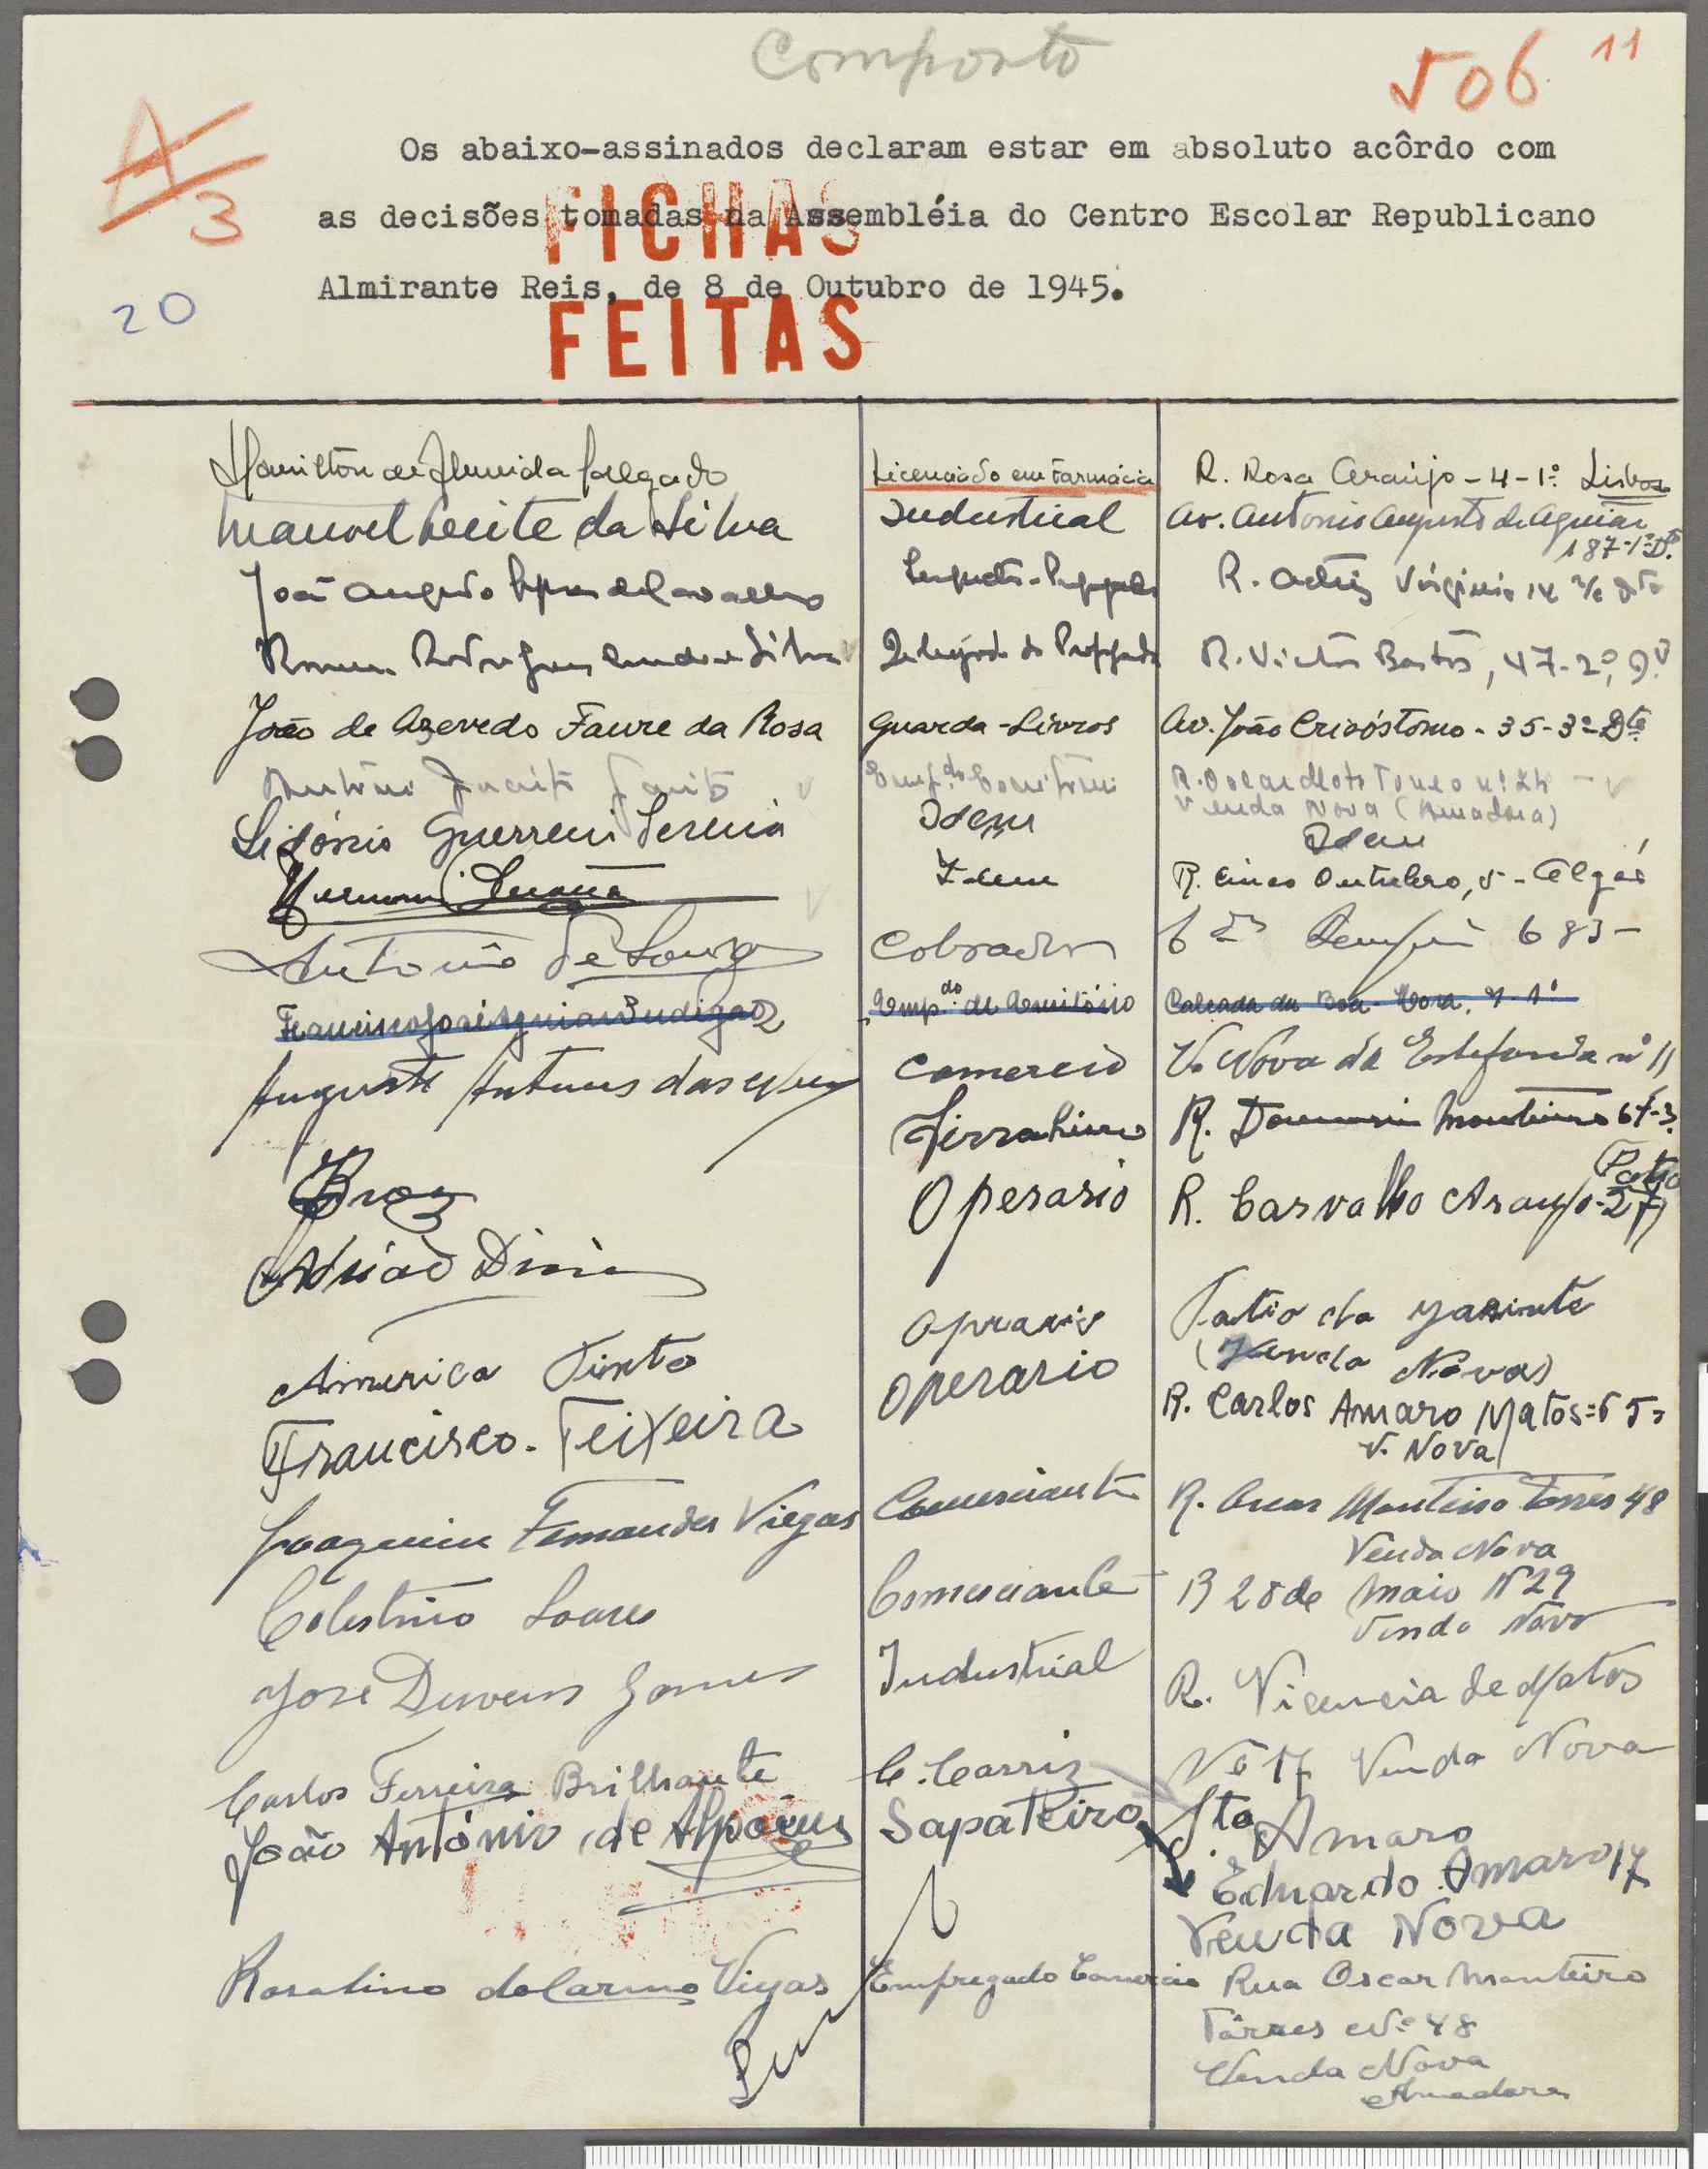 Composto
506 11
A/3
Os abaixo-assinados declaram estar em absoluto acôrdo com
as decisões tomadas na Assembléia do Centro Escolar Republicano
Almirante Reis, de 8 de Outubro de 1945.
FICHAS
FEITAS
20
Hamilton de Almeida Salgado Licenciado em Farmácia R. Rosa Araújo - 4 - 1º Lisboa
Manuel Leite da Silva Industrial Av. Antonio Augusto de Aguiar
187-1º Dto
João Augusto R. Actriz Virginia 14 r/c Dto
Silva R. Victor Bastos, 47-2º, D.
João de Azevedo Faure da Rosa Guarda-Livros Av. João Crisóstomo - 35-3º Dto
António Empdo Escritório
Venda Nova (Amadora)
Guerreiro Idem Idem
Idem R. Cinco Outubro, 5 - Algés
António de Souza Cobrador 683
Francisco José Empdo de Escritório Calçada da Boa-Hora, 1º
Augusto Antunes das Comercio V. Nova da Estefania nº 11
Serralheiro R. Monteiro 67-3.
Braz Operario R. Carvalho Araujo-27
Patio
Adrião Diniz
Oprario Patio da
America Pinto (Venda Nova)
Francisco Teixeira Operario R. Carlos Amaro Matos
V. Nova
Joaquim Fernandes Viegas Comerciante R. Oscar Monteiro Torres 48
Venda Nova
Celestino Soares Comerciante R 28 de Maio Nº 29
Venda Nova
José Gomes Industrial R. Vicencia de Matos
Carlos Ferreira Brilhante C. Carris Nº 17 Venda Nova
Sto Amaro
João António de Sapateiro Eduardo Amaro 17
Venda Nova
Rosalino do Carmo Viegas Empregado Comercio Rua Oscar Monteiro
Tôrres Nº 48
Venda Nova
Amadora